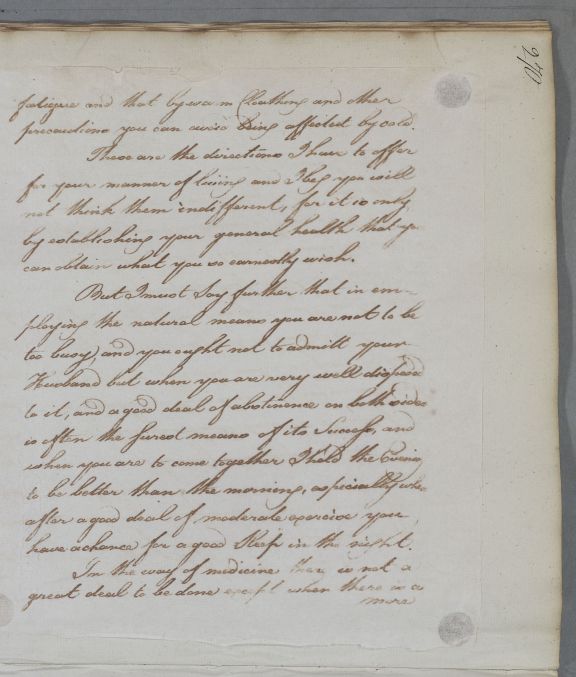 240
fatigue and that by warm Cloathing and other
precautions you can avoid being affected by cold.
These are the directions I have to offer
for your manner of living and I beg you will
not think them indifferent, for it is only
by establishing your general health that you
can obtain what you so earnestly wish.
But I must Say further that in em-
ploying the natural means you are not to be
too busy, and you ought not to admitt your
Husband but when you are very well disposed
to it, and a good deal of abstinence on both sides
is often the surest means of its Success, and
when you are to come together I hold the Evening
to be better than the morning, especially when
after a good deal of moderate exercise you
have a chance for a good Sleep in the night.
In the way of medicine there is not a
great deal to be done except when there is a
more